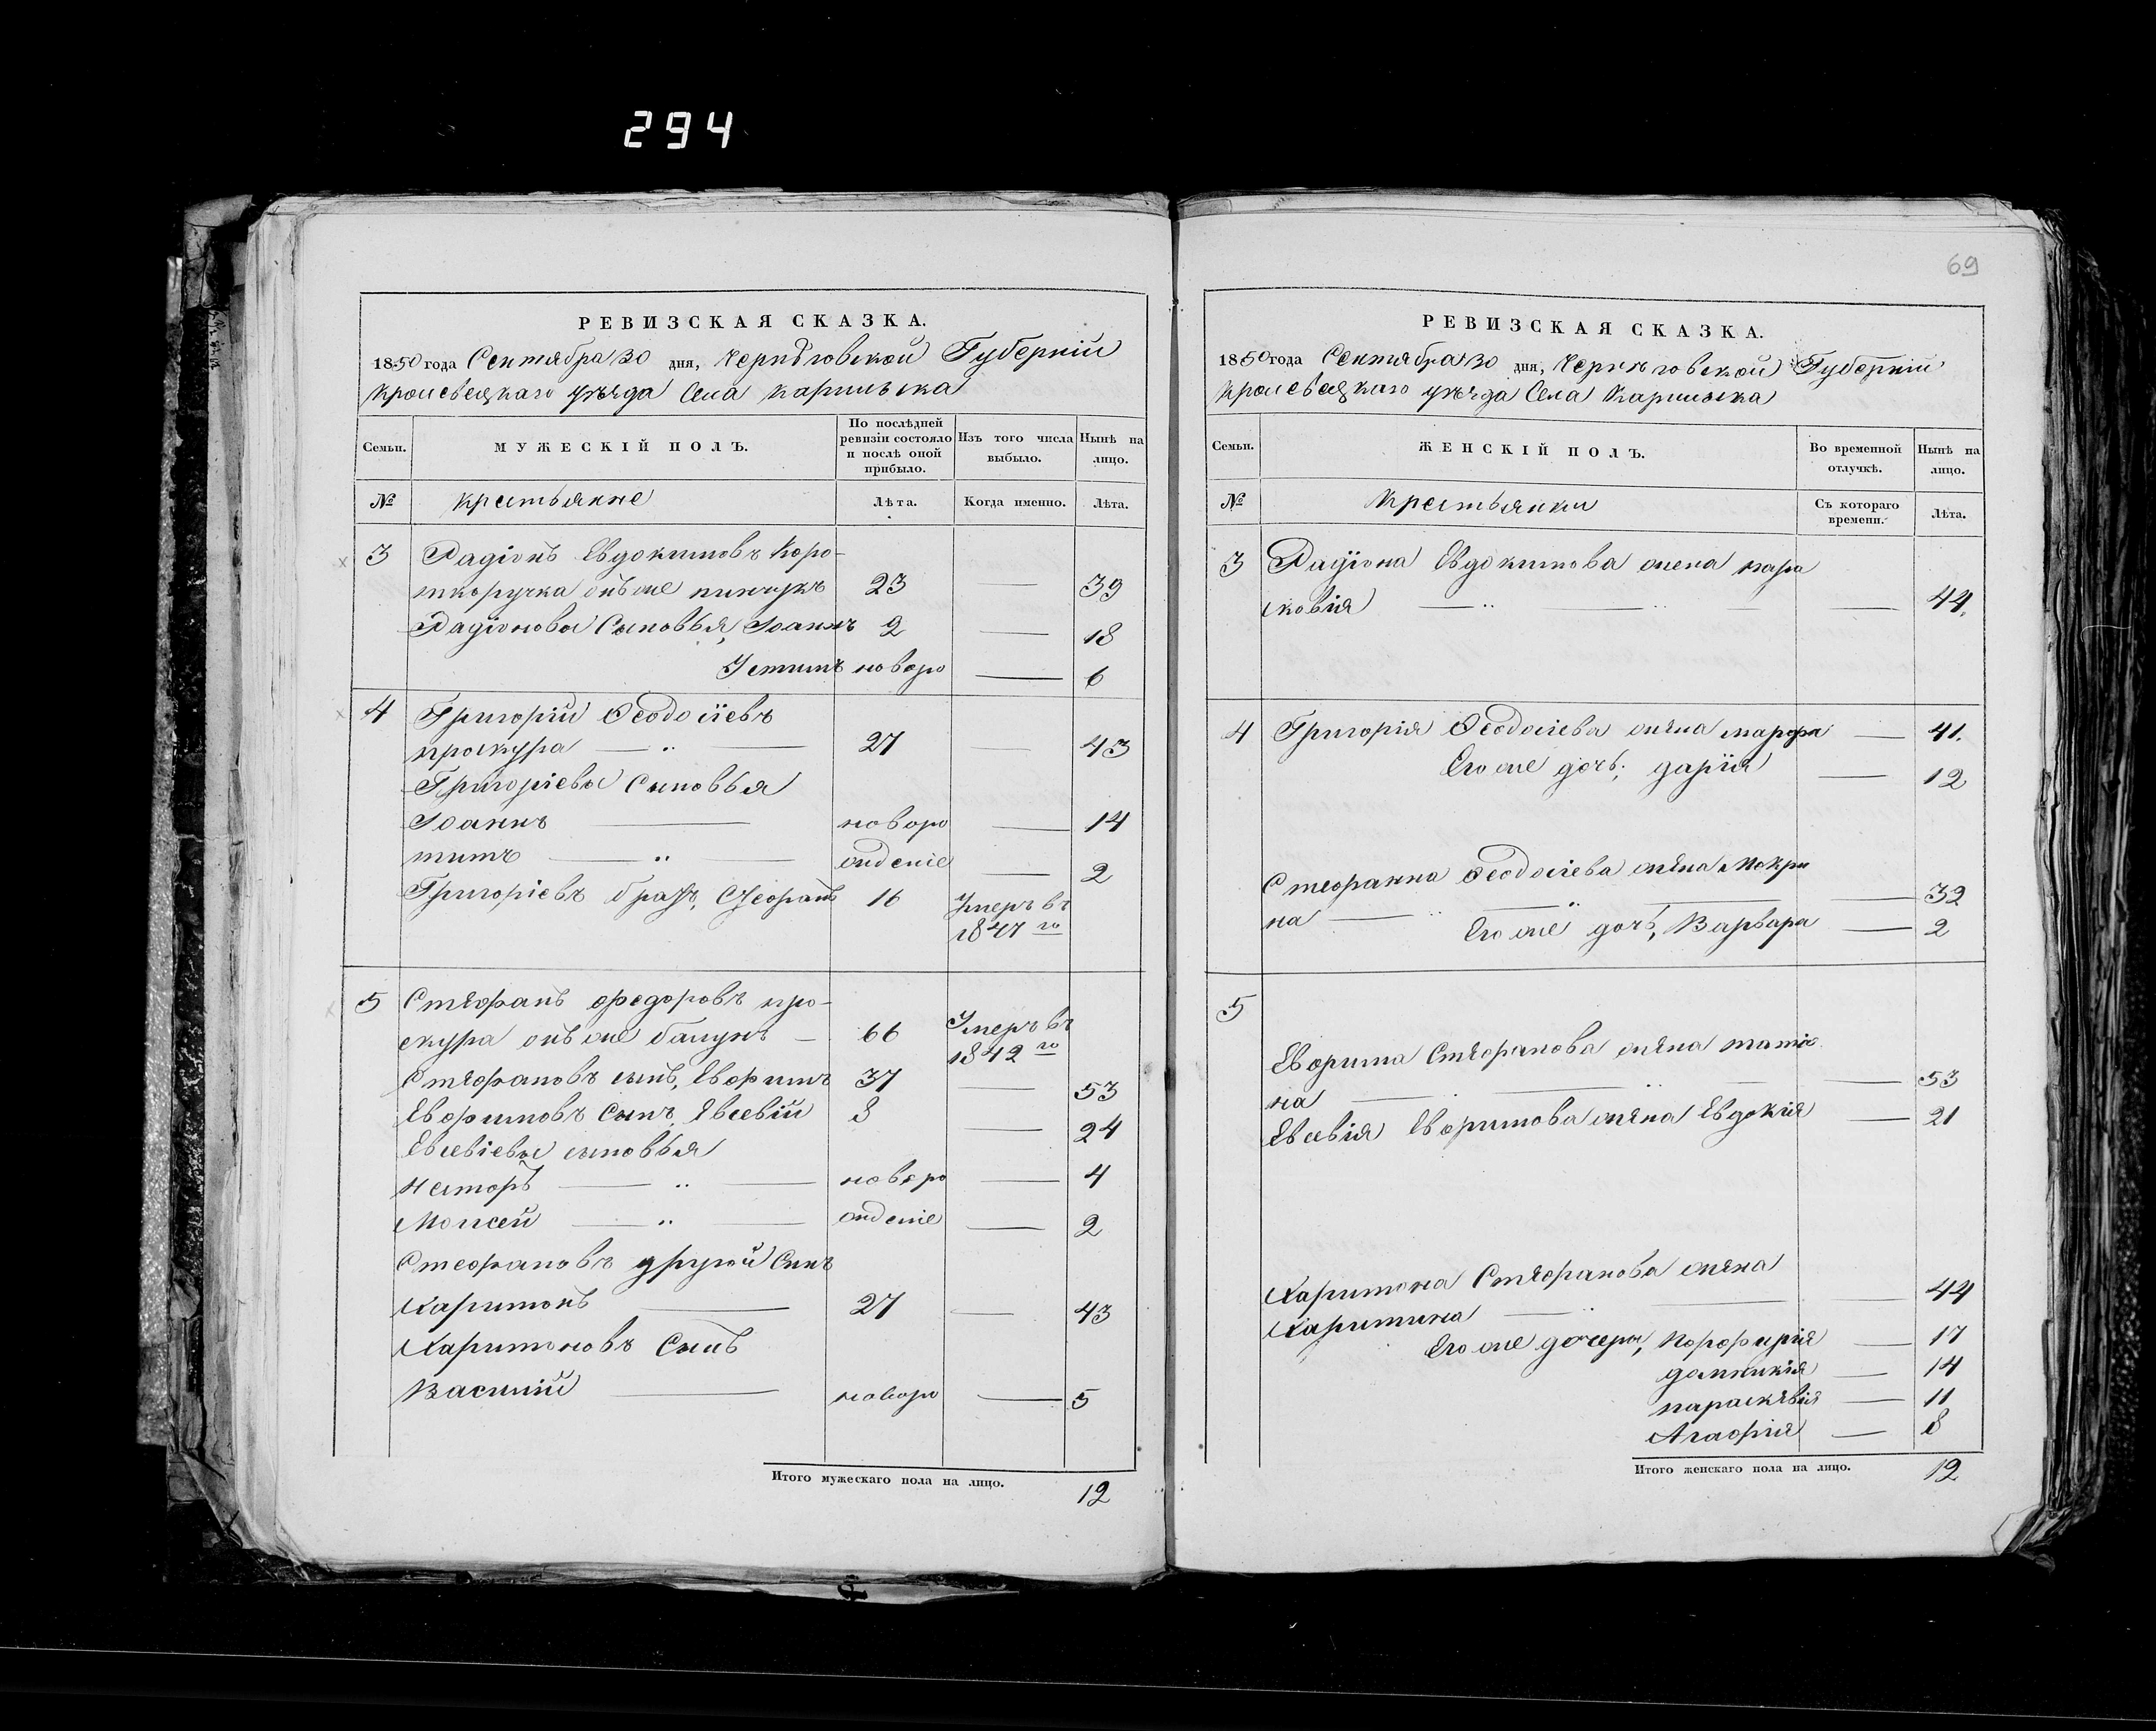 294
69
РЕВИЗСКАЯ СКАЗКА.
1850 года Сентября 30 дня, Черниговской Губерніи
Кролевецкаго уѣзда Села Карильска
Семьи.
МУЖЕСКІЙ ПОЛЪ.
По послѣдней ревизіи состояло и послѣ оной прибыло.
Изъ того числа выбыло.
Нынѣ на лицо.
№
крестьяне
Лѣта.
Когда именно.
Лѣта.
3 Радіонъ Евдокимовъ Коро-
ткоручка онъ же пинчукъ 23 — 39
Радіоновы Сыновья, Іоаннъ 2 — 18
Устинъ новоро — 6
4 Григорій Ѳеодосіевъ
проскура — „ — 27 — 43
Григоріевы Сыновья
Іоаннъ — новоро — 14
титъ — „ — жденіе — 2
Григоріевъ братъ, Стефанъ 16 Умеръ въ
1847 го
5 Стефанъ федоровъ про-
скура онъ же балунъ — 66 Умеръ въ
1842 го
Стефановъ сынъ, Евфимъ 37 — 53
Евфимовъ Сынъ, Евсевій 8 — 24
Евсевіевы сыновья
Несторъ — „ — новоро — 4
Моисей — „ — жденіе — 2
Стефановъ другой Сынъ
Харитонъ — 27 — 43
Харитоновъ Сынъ
Василій — новоро — 5
Итого мужескаго пола на лицо. 12
РЕВИЗСКАЯ СКАЗКА.
1850 года Сентября 30 дня, Черниговской Губерніи
Кролевецкаго уѣзда Села Карильска
Семьи.
ЖЕНСКІЙ ПОЛЪ.
Во временной отлучкѣ.
Нынѣ на лицо.
№
Крестьянки
Съ котораго времени.
Лѣта.
3 Радіона Евдокимова жена пара
сковія — „ — „ — 44.
4 Григорія Ѳеодосіева жена марфа — 41.
Его же дочь; дарія — 12
Стефанна Ѳеодосіева жена Мокри
на — „ — „ — 32
Его же дочь, Варвара — 2
5
Евфима Стефанова жена татiя
на — „ — 53
Евсевія Евфимова жена Евдокія — 21
Харитона Стефанова жена
Харитина — „ — 44
Его же дочери, Порфирія — 17
домникія — 14
параскевія — 11
Агафія — 8
Итого женскаго пола на лицо. 12